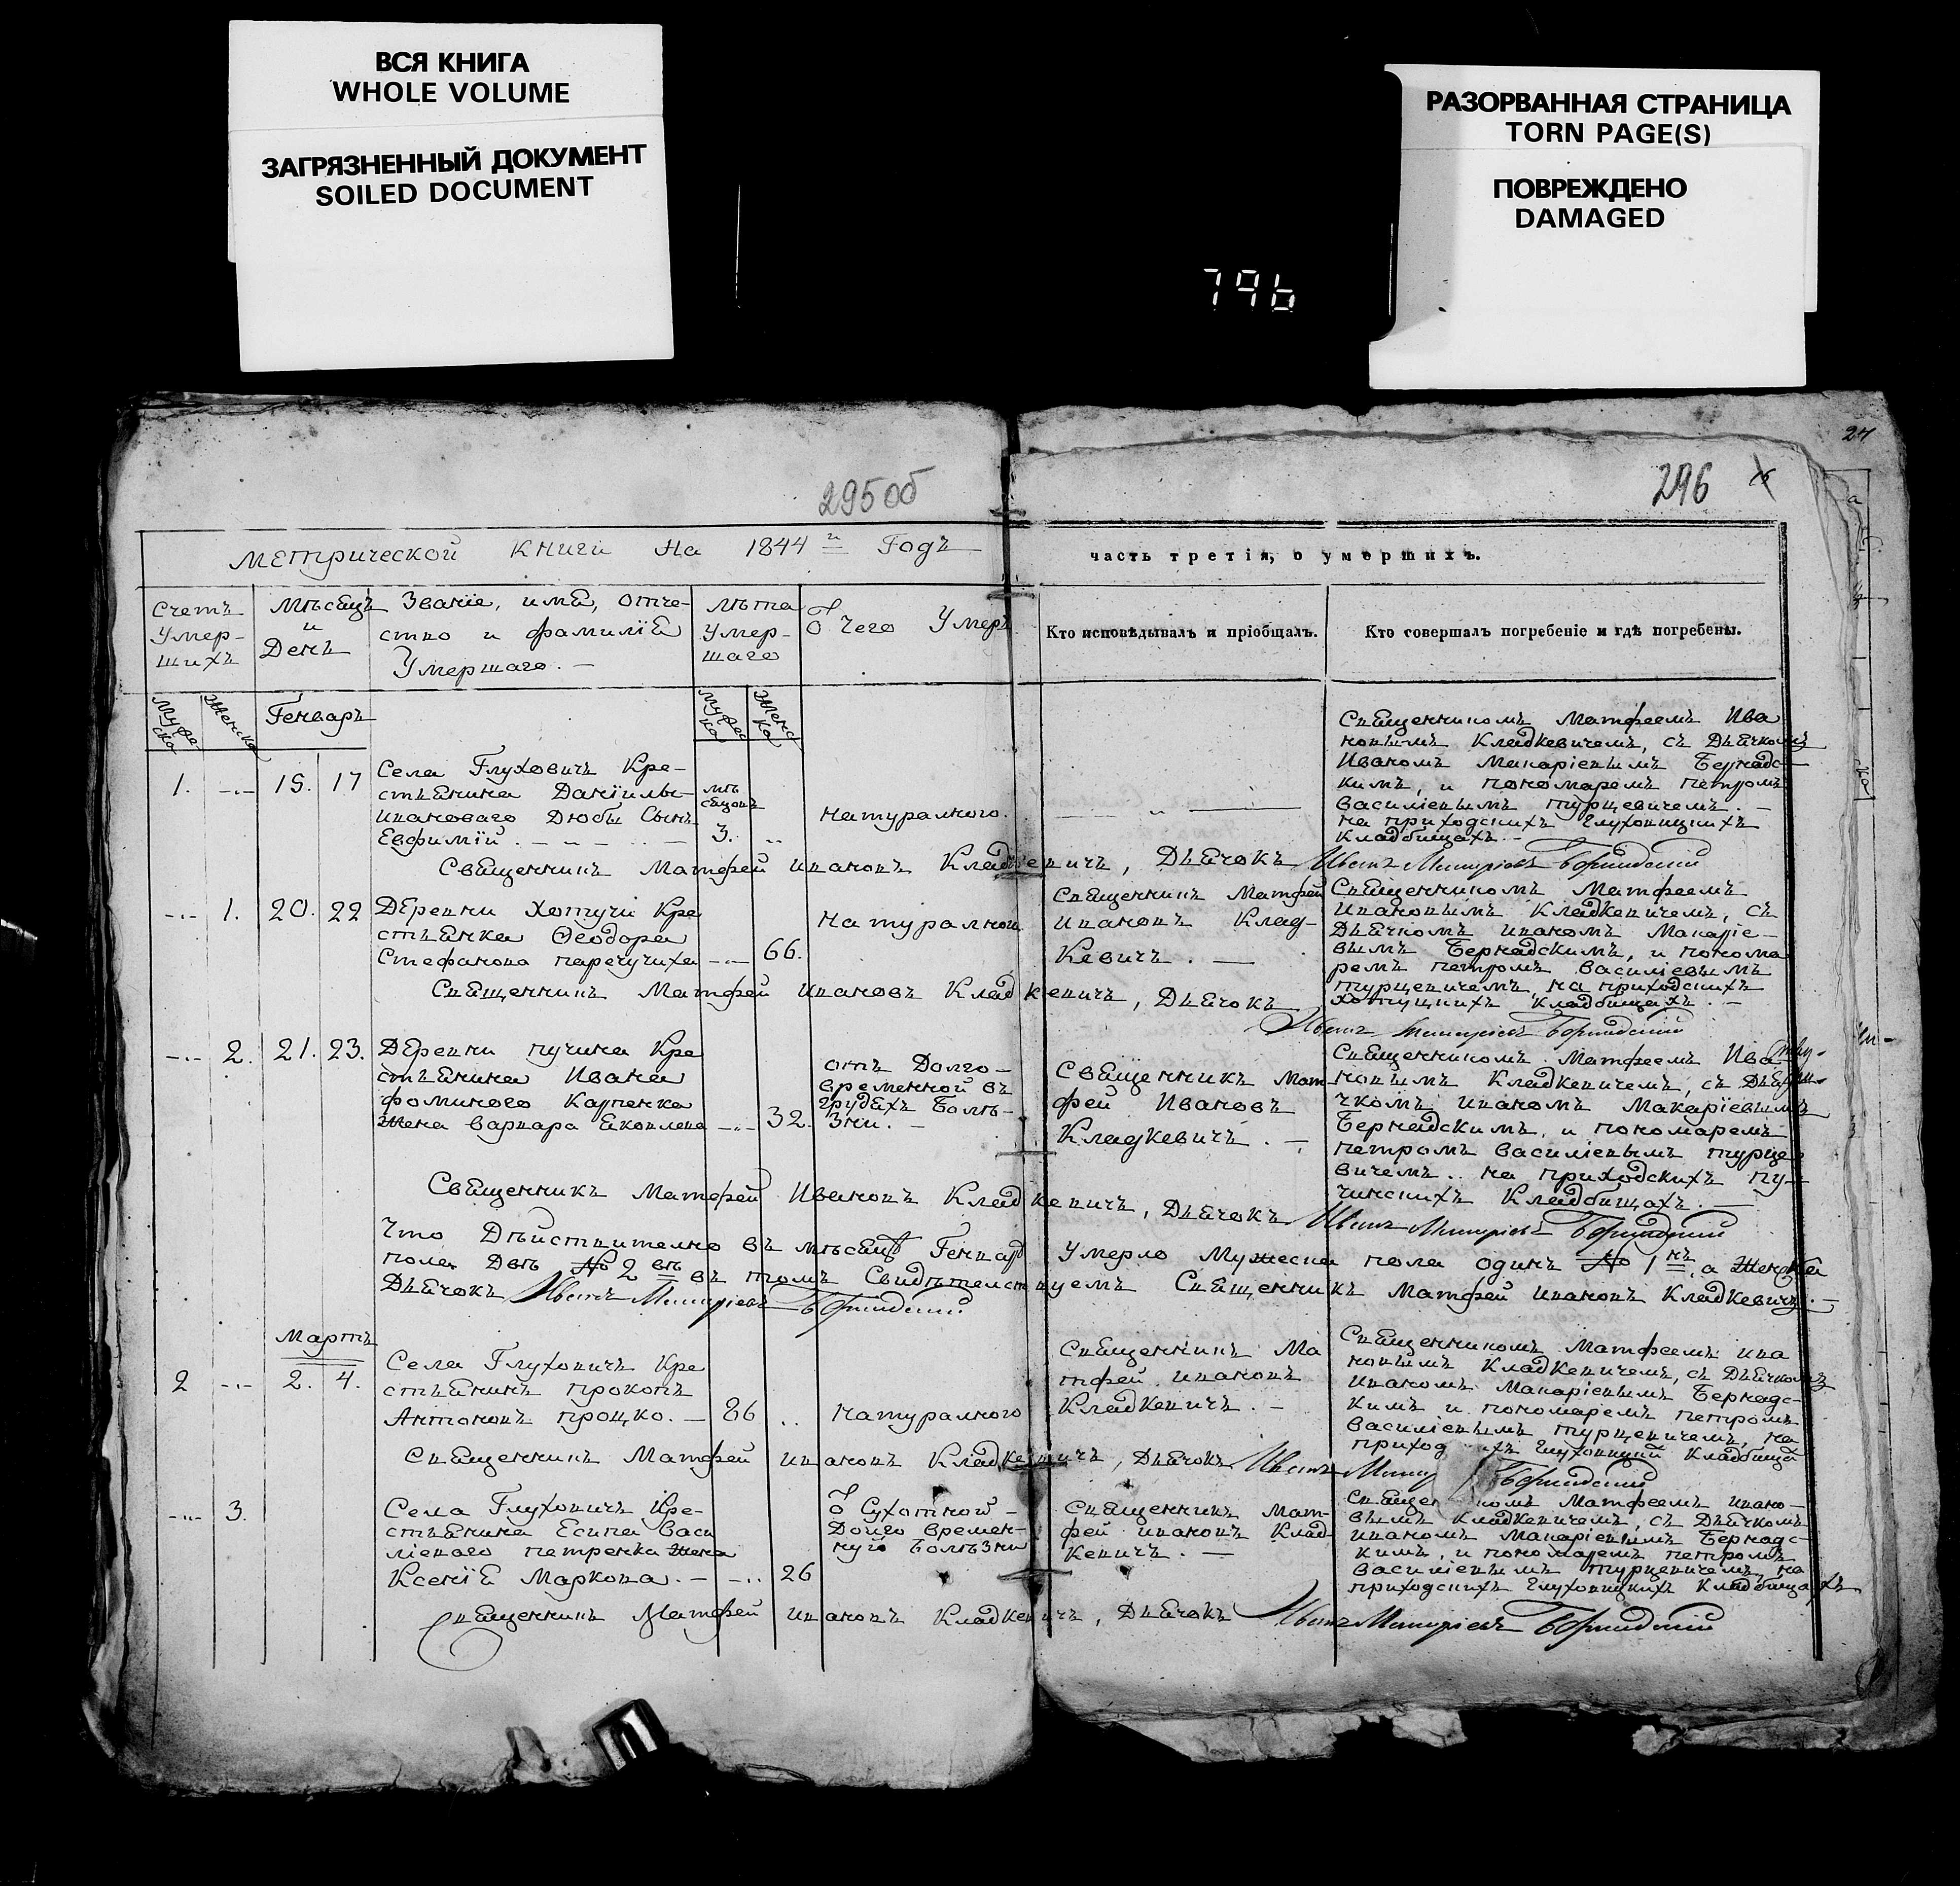 ВСЯ КНИГА
WHOLE VOLUME
ЗАГРЯЗНЕННЫЙ ДОКУМЕНТ
SOILED DOCUMENT
РАЗОРВАННАЯ СТРАНИЦА
TORN PAGE(S)
ПОВРЕЖДЕНО
DAMAGED
796
24
295об
296
Метрической Книги На 1844 й Годъ
часть третія, о умершихъ.
Счетъ
Умер-
шихъ
Мѣсяцъ
и
День
Званіе, имя, отче-
ство и фамилія
Умершаго. —
Лѣта
Умер-
шаго
Ѿ чего Умеръ
Кто исповѣдывалъ и пріобщалъ.
Кто совершалъ погребеніе и гдѣ погребены.
Муже-
ска
Женска
Генварь
Мужес
ка
Женс
ка
1. -..- 15. 17
Села Глуховичъ Кре-
стьянина Даніилы-
Ивановаго Дюбы Сынъ
Евфимій. — .. —
мѣ
сяцовъ
3. ..
натуралного.
Священникомъ Матфеемъ Ива
новымъ Кладкевичемъ, съ Дьячкомъ
Иваномъ Макаріевымъ Бернадс-
кимъ, и пономаремъ петромъ
василіевымъ турцевичемъ. —
на приходскихъ Глуховицкихъ
Кладбищахъ. -
Священникъ Матфей Ивановъ Кладкевичъ, Дьячокъ Иванъ Макаріевъ Бернадскій
-..- 1. 20. 22
Деревни Хотучи Кре
стьянка Ѳеодора
Стефанова паречучиха -..- 66.
натуралной
Священникъ Матфей
Ивановъ Клад-
Кевичъ. —
Священникомъ Матфеемъ
Ивановымъ Кладкевичемъ, съ
Дьячкомъ Иваномъ Макаріе-
вымъ Бернадскимъ, и понома
ремъ петромъ василіевымъ
турцевичемъ, на приходскихъ
хотуцкихъ кладбищахъ. —
Священникъ Матфей Ивановъ Кладкевичъ, Дьячокъ
Иванъ Макаріевъ Бернадскій
-..- 2. 21. 23.
Деревни пучина Кре
стьянина Ивана
фоминого Карпенка
Жена варвара Яковлева -..- 32.
отъ Долго-
временной въ
грудяхъ Болѣ-
зни. -
Священникъ Мат-
фей Ивановъ
Кладкевичъ. —
Священникомъ Матфеемъ Ива
новымъ Кладкевичемъ, съ Дья-
чкомъ Иваномъ Макаріевымъ
Бернадскимъ, и пономаремъ
петромъ василіевымъ турце
вичемъ.. на приходскихъ пу-
чинскихъ Кладбищахъ. —
Священникъ Матфей Ивановъ Кладкевичъ, Дьячокъ Иванъ Макаріевъ Бернадскій
Что Дѣйствително въ мѣсяцѣ Генварѣ Умерло Мужеска пола одинъ № 1 нъ, а Женска
пола Двѣ № 2 вѣ въ томъ Свидѣтелствуемъ Священникъ Матфей Ивановъ Кладкевичъ. —
Дьячокъ Иванъ Макаріевъ Бернадскій
Мартъ
2 -..- 2. 4.
Села Глуховичъ Кре
стьянинъ прокопъ
Антоновъ процко. — 86 ..
Натуралного
Священникъ Ма
тфей Ивановъ
Кладкевичъ. -
Священникомъ Матфеемъ ива
новымъ Кладкевичемъ, съ Дьячкомъ
Иваномъ Макаріевымъ Бернадс-
кимъ и пономаремъ петромъ
василіевымъ турцевичемъ, на
Священникъ Матфей Ивановъ Кладкевичъ, Дьячокъ Иванъ Бернадскій
-..- 3.
Села Глуховичъ Кре-
стьянина Есипа Васи
ліеваго петренка Жена
Ксенія Маркова. — -.. 26
Ѿ Сухотной -
Долго времен-
ного Болѣзни
Священникъ Мат-
фей ивановъ Клад-
кевичъ. —
Матфеемъ ивано-
вымъ Кладкевичемъ, съ Дьячкомъ
Иваномъ Макаріевымъ Бернадс-
кимъ, и пономаремъ петромъ
василіевымъ турцевичемъ, на
приходскихъ глуховицкихъ Кладбищахъ
Священникъ Матфей Ивановъ Кладкевичъ, Дьячокъ Иванъ Макаріевъ Бернадскій